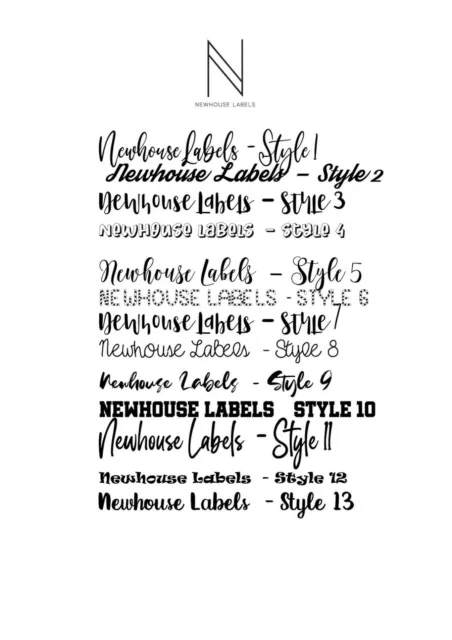 N
NEWHOUSE LABELS
Newhouse Labels - Style 1
Newhouse Labels - Style 2
Newhouse Labels - Style 3
Newhouse Labels - Style 4
Newhouse Labels - Style 5
NEWHOUSE LABELS - STYLE 6
Newhouse Labels - Style 7
Newhouse Labels - Style 8
Newhouse Labels - Style 9
NEWHOUSE LABELS STYLE 10
Newhouse Labels - Style 11
Newhouse Labels - Style 12
Newhouse Labels - Style 13